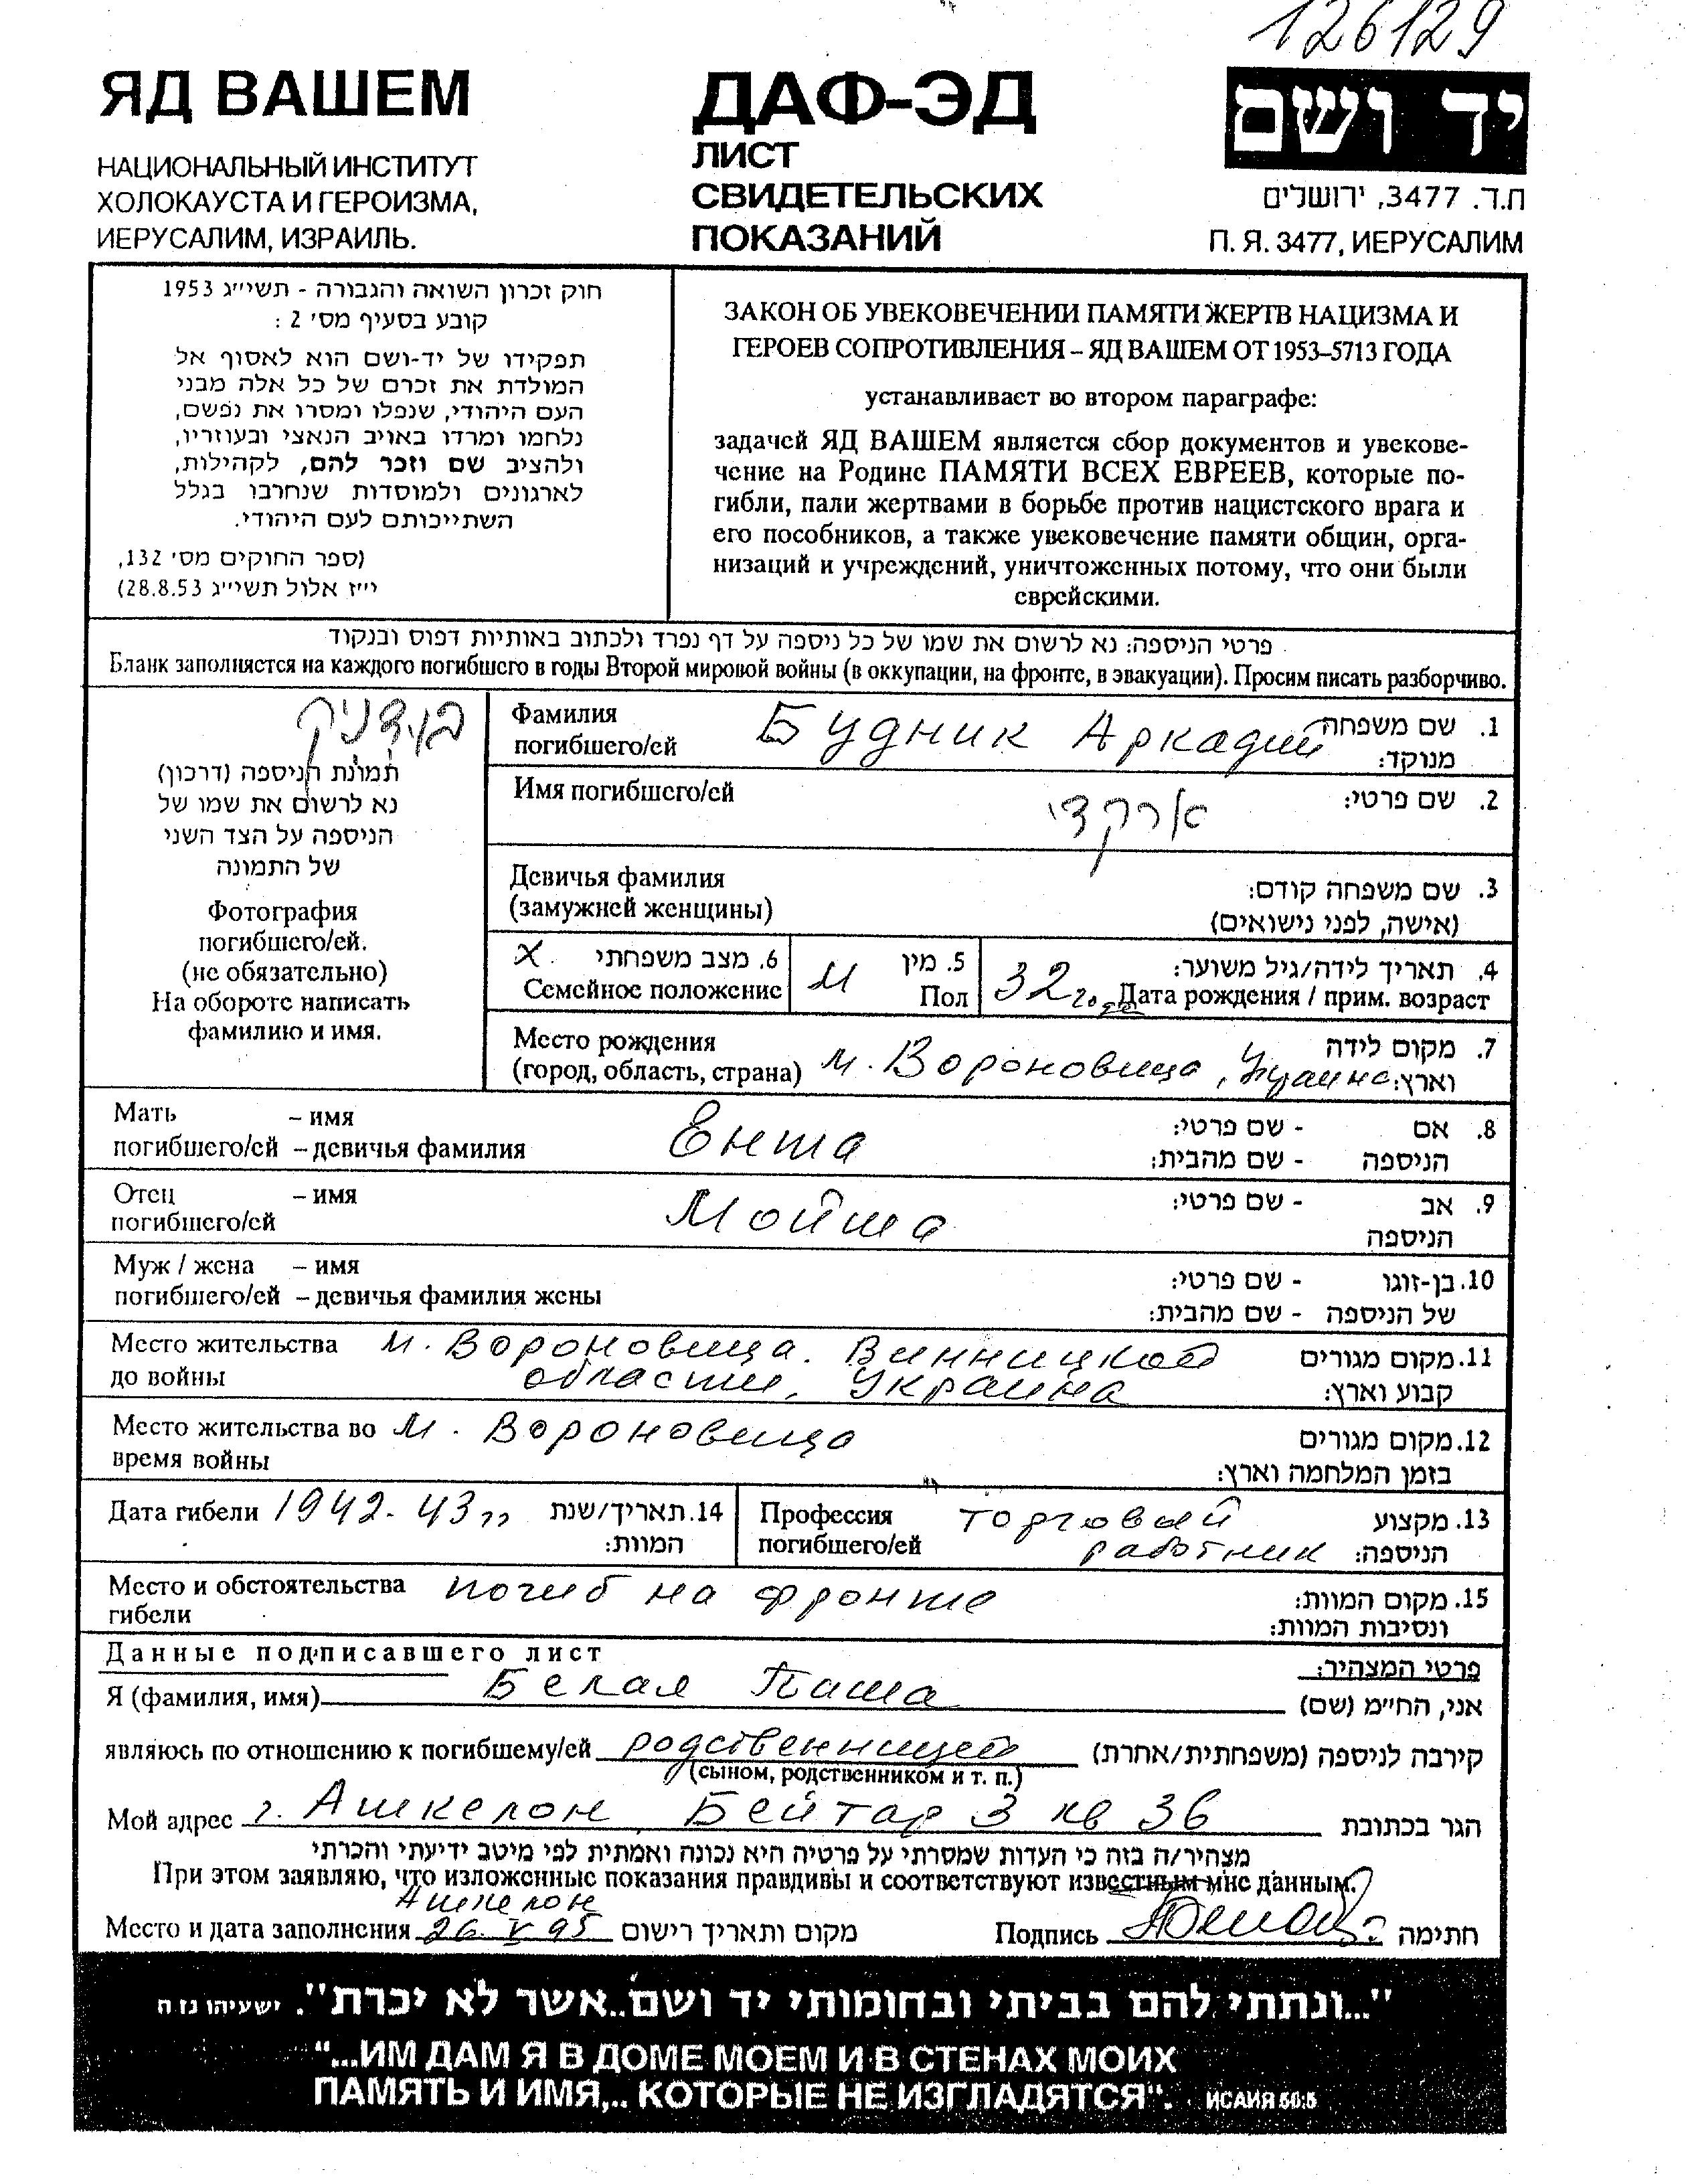 126129
ЯД ВАШЕМ
НАЦИОНАЛЬНЫЙ ИНСТИТУТ
ХОЛОКАУСТА И ГЕРОИЗМА,
ИЕРУСАЛИМ, ИЗРАИЛЬ.
ДАФ-ЭД
ЛИСТ
СВИДЕТЕЛЬСКИХ
ПОКАЗАНИЙ
יד ושם
ת.ד. 3477, ירושלים
П. Я. 3477, ИЕРУСАЛИМ
חוק זכרון השואה והגבורה - תשי״ג 1953
קובע בסעיף מס׳ 2 :
תפקידו של יד-ושם הוא לאסוף אל
המולדת את זכרם של כל אלה מבני
העם היהודי, שנפלו ומסרו את נפשם,
נלחמו ומרדו באויב הנאצי ובעוזריו,
ולהציב שם וזכר להם, לקהילות,
לארגונים ולמוסדות שנחרבו בגלל
השתייכותם לעם היהודי.
(ספר החוקים מס׳ 132,
י״ז אלול תשי״ג 28.8.53)
ЗАКОН ОБ УВЕКОВЕЧЕНИИ ПАМЯТИ ЖЕРТВ НАЦИЗМА И
ГЕРОЕВ СОПРОТИВЛЕНИЯ – ЯД ВАШЕМ ОТ 1953–5713 ГОДА
устанавливает во втором параграфе:
задачей ЯД ВАШЕМ является сбор документов и увекове-
чение на Родине ПАМЯТИ ВСЕХ ЕВРЕЕВ, которые по-
гибли, пали жертвами в борьбе против нацистского врага и
его пособников, а также увековечение памяти общин, орга-
низаций и учреждений, уничтоженных потому, что они были
еврейскими.
פרטי הניספה: נא לרשום את שמו של כל ניספה על דף נפרד ולכתוב באותיות דפוס ובנקוד
Бланк заполняется на каждого погибшего в годы Второй мировой войны (в оккупации, на фронте, в эвакуации). Просим писать разборчиво.
בודניק
תמונת הניספה (דרכון)
נא לרשום את שמו של
הניספה על הצד השני
של התמונה
Фотография
погибшего/ей.
(не обязательно)
На обороте написать
фамилию и имя.
Фамилия
погибшего/ей Будник Аркадий
1. שם משפחה
מנוקד:
Имя погибшего/ей ארקדי 2. שם פרטי:
Девичья фамилия
(замужней женщины)
3. שם משפחה קודם:
(אישה, לפני נישואים)
X 6. מצב משפחתי
Семейное положение
М 5. מין
Пол
4. תאריך לידה/גיל משוער:
32 года Дата рождения / прим. возраст
Место рождения
(город, область, страна) м. Вороновица, Украина
7. מקום לידה
וארץ:
Мать – имя
погибшего/ей – девичья фамилия
Ента
8. אם - שם פרטי:
הניספה - שם מהבית:
Отец – имя
погибшего/ей
Мойша
9. אב - שם פרטי:
הניספה
Муж / жена – имя
погибшего/ей – девичья фамилия жены
10. בן-זוגו - שם פרטי:
של הניספה - שם מהבית:
Место жительства
до войны
м. Вороновица. Винницкой
области, Украина
11. מקום מגורים
קבוע וארץ:
Место жительства во
время войны
м. Вороновица
12. מקום מגורים
בזמן המלחמה וארץ:
Дата гибели 1942-43 гг
14. תאריך/שנת
המוות:
Профессия
погибшего/ей
торговый
работник
13. מקצוע
הניספה:
Место и обстоятельства
гибели
погиб на фронте
15. מקום המוות:
ונסיבות המוות:
Данные подписавшего лист
פרטי המצהיר:
Я (фамилия, имя) Белая Паша אני, הח״מ (שם)
являюсь по отношению к погибшему/ей родственницей קירבה לניספה (משפחתית/אחרת)
(сыном, родственником и т. п.)
Мой адрес г. Ашкелон, Бейтар 3 кв 36 הגר בכתובת
מצהיר/ה בזה כי העדות שמסרתי על פרטיה היא נכונה ואמתית לפי מיטב ידיעתי והכרתי
При этом заявляю, что изложенные показания правдивы и соответствуют известным мне данным.
Ашкелон
Место и дата заполнения 26. V. 95 מקום ותאריך רישום
Подпись חתימה
"...ונתתי להם בביתי ובחומותי יד ושם..אשר לא יכרת". ישעיהו נז ה
“...ИМ ДАМ Я В ДОМЕ МОЕМ И В СТЕНАХ МОИХ
ПАМЯТЬ И ИМЯ,.. КОТОРЫЕ НЕ ИЗГЛАДЯТСЯ“. ИСАИЯ 56:5